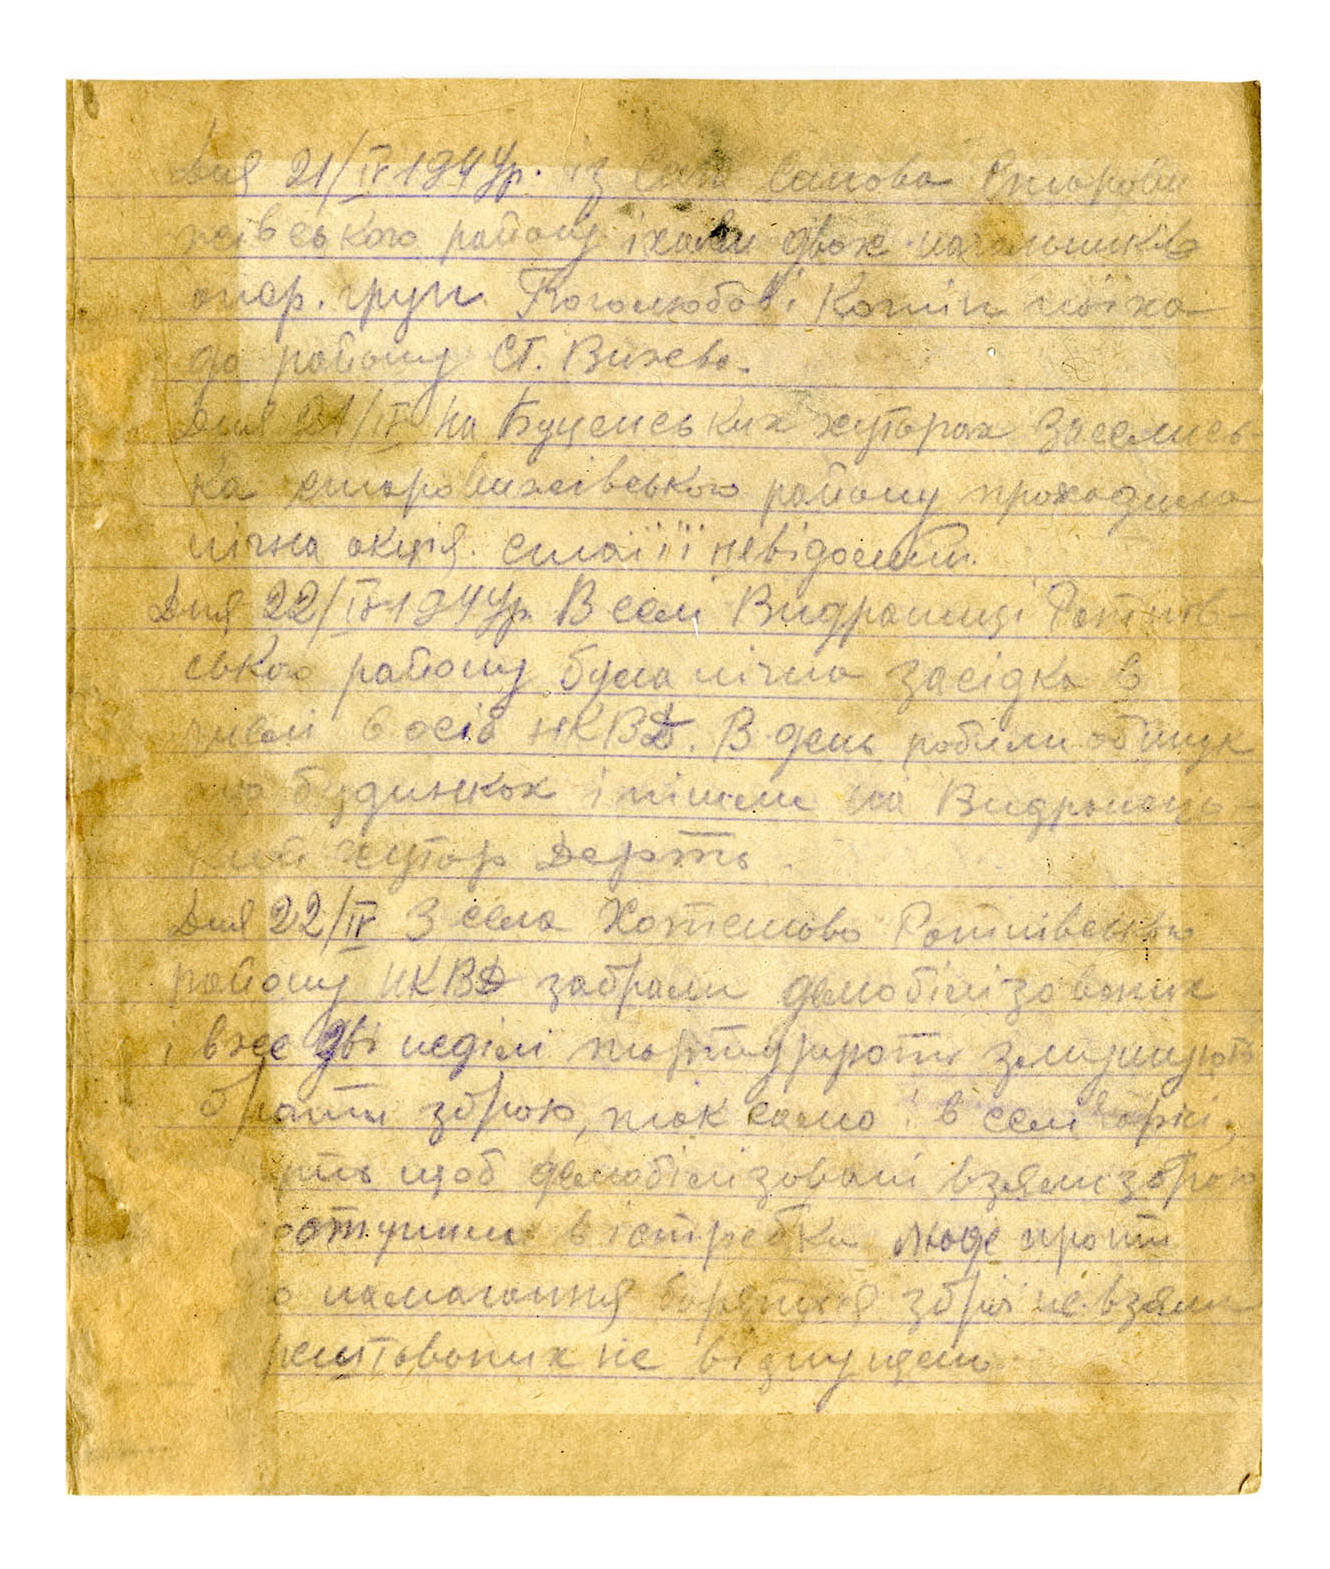 Дня 21/IV 1944р. із села Самова Старови
жівського району їхали двох начальників
опер. груп Боголюбов і Котін
до району Ст. Вижва.
Дня 21/IV на Буценських хуторах Заселись-
ка старовижівського району проходила
нічна акція. сила її невідома.
Дня 22/IV 1944р. В селі Видраниці Ратнів-
ського району була нічна засідка в
числі 6 осіб НКВД. В день робили обшук
по будинках і пішли на Видранець-
кий хутор Дерть.
Дня 22/IV З села Хотешово Ратнівського
району НКВД забрали демобілізованих
і вже дві неділі тортурують змушують
брати зброю, так само і в селі
ть щоб демобілізовані взяли зброю
оступили в істребки Люде проти
о намагання зброї не взяли
рештованих не відпущено